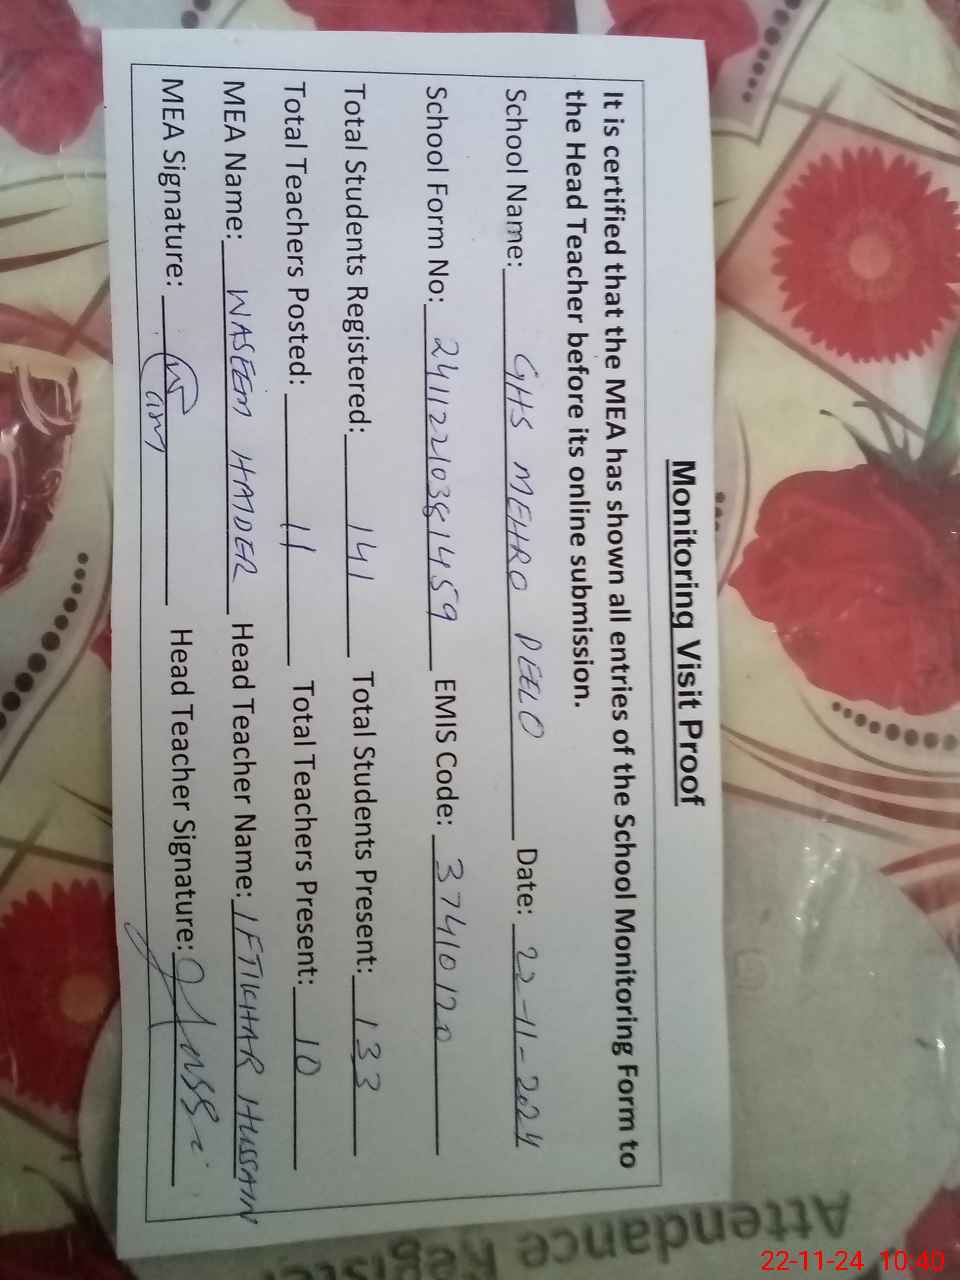 Monitoring Visit Proof
It is certified that the MEA has shown all entries of the School Monitoring Form to
the Head Teacher before its online submission.
School Name: GHS MEHRO DEELO Date: 22-11-2024
School Form No: 24112210381459 EMIS Code: 37410120
Total Students Registered: 141 Total Students Present: 133
Total Teachers Posted: 11 Total Teachers Present: 10
MEA Name: WASEEM HAIDER Head Teacher Name: IFTIKHAR HUSSAIN
MEA Signature: Head Teacher Signature:
Attendance Register
22-11-24 10:40